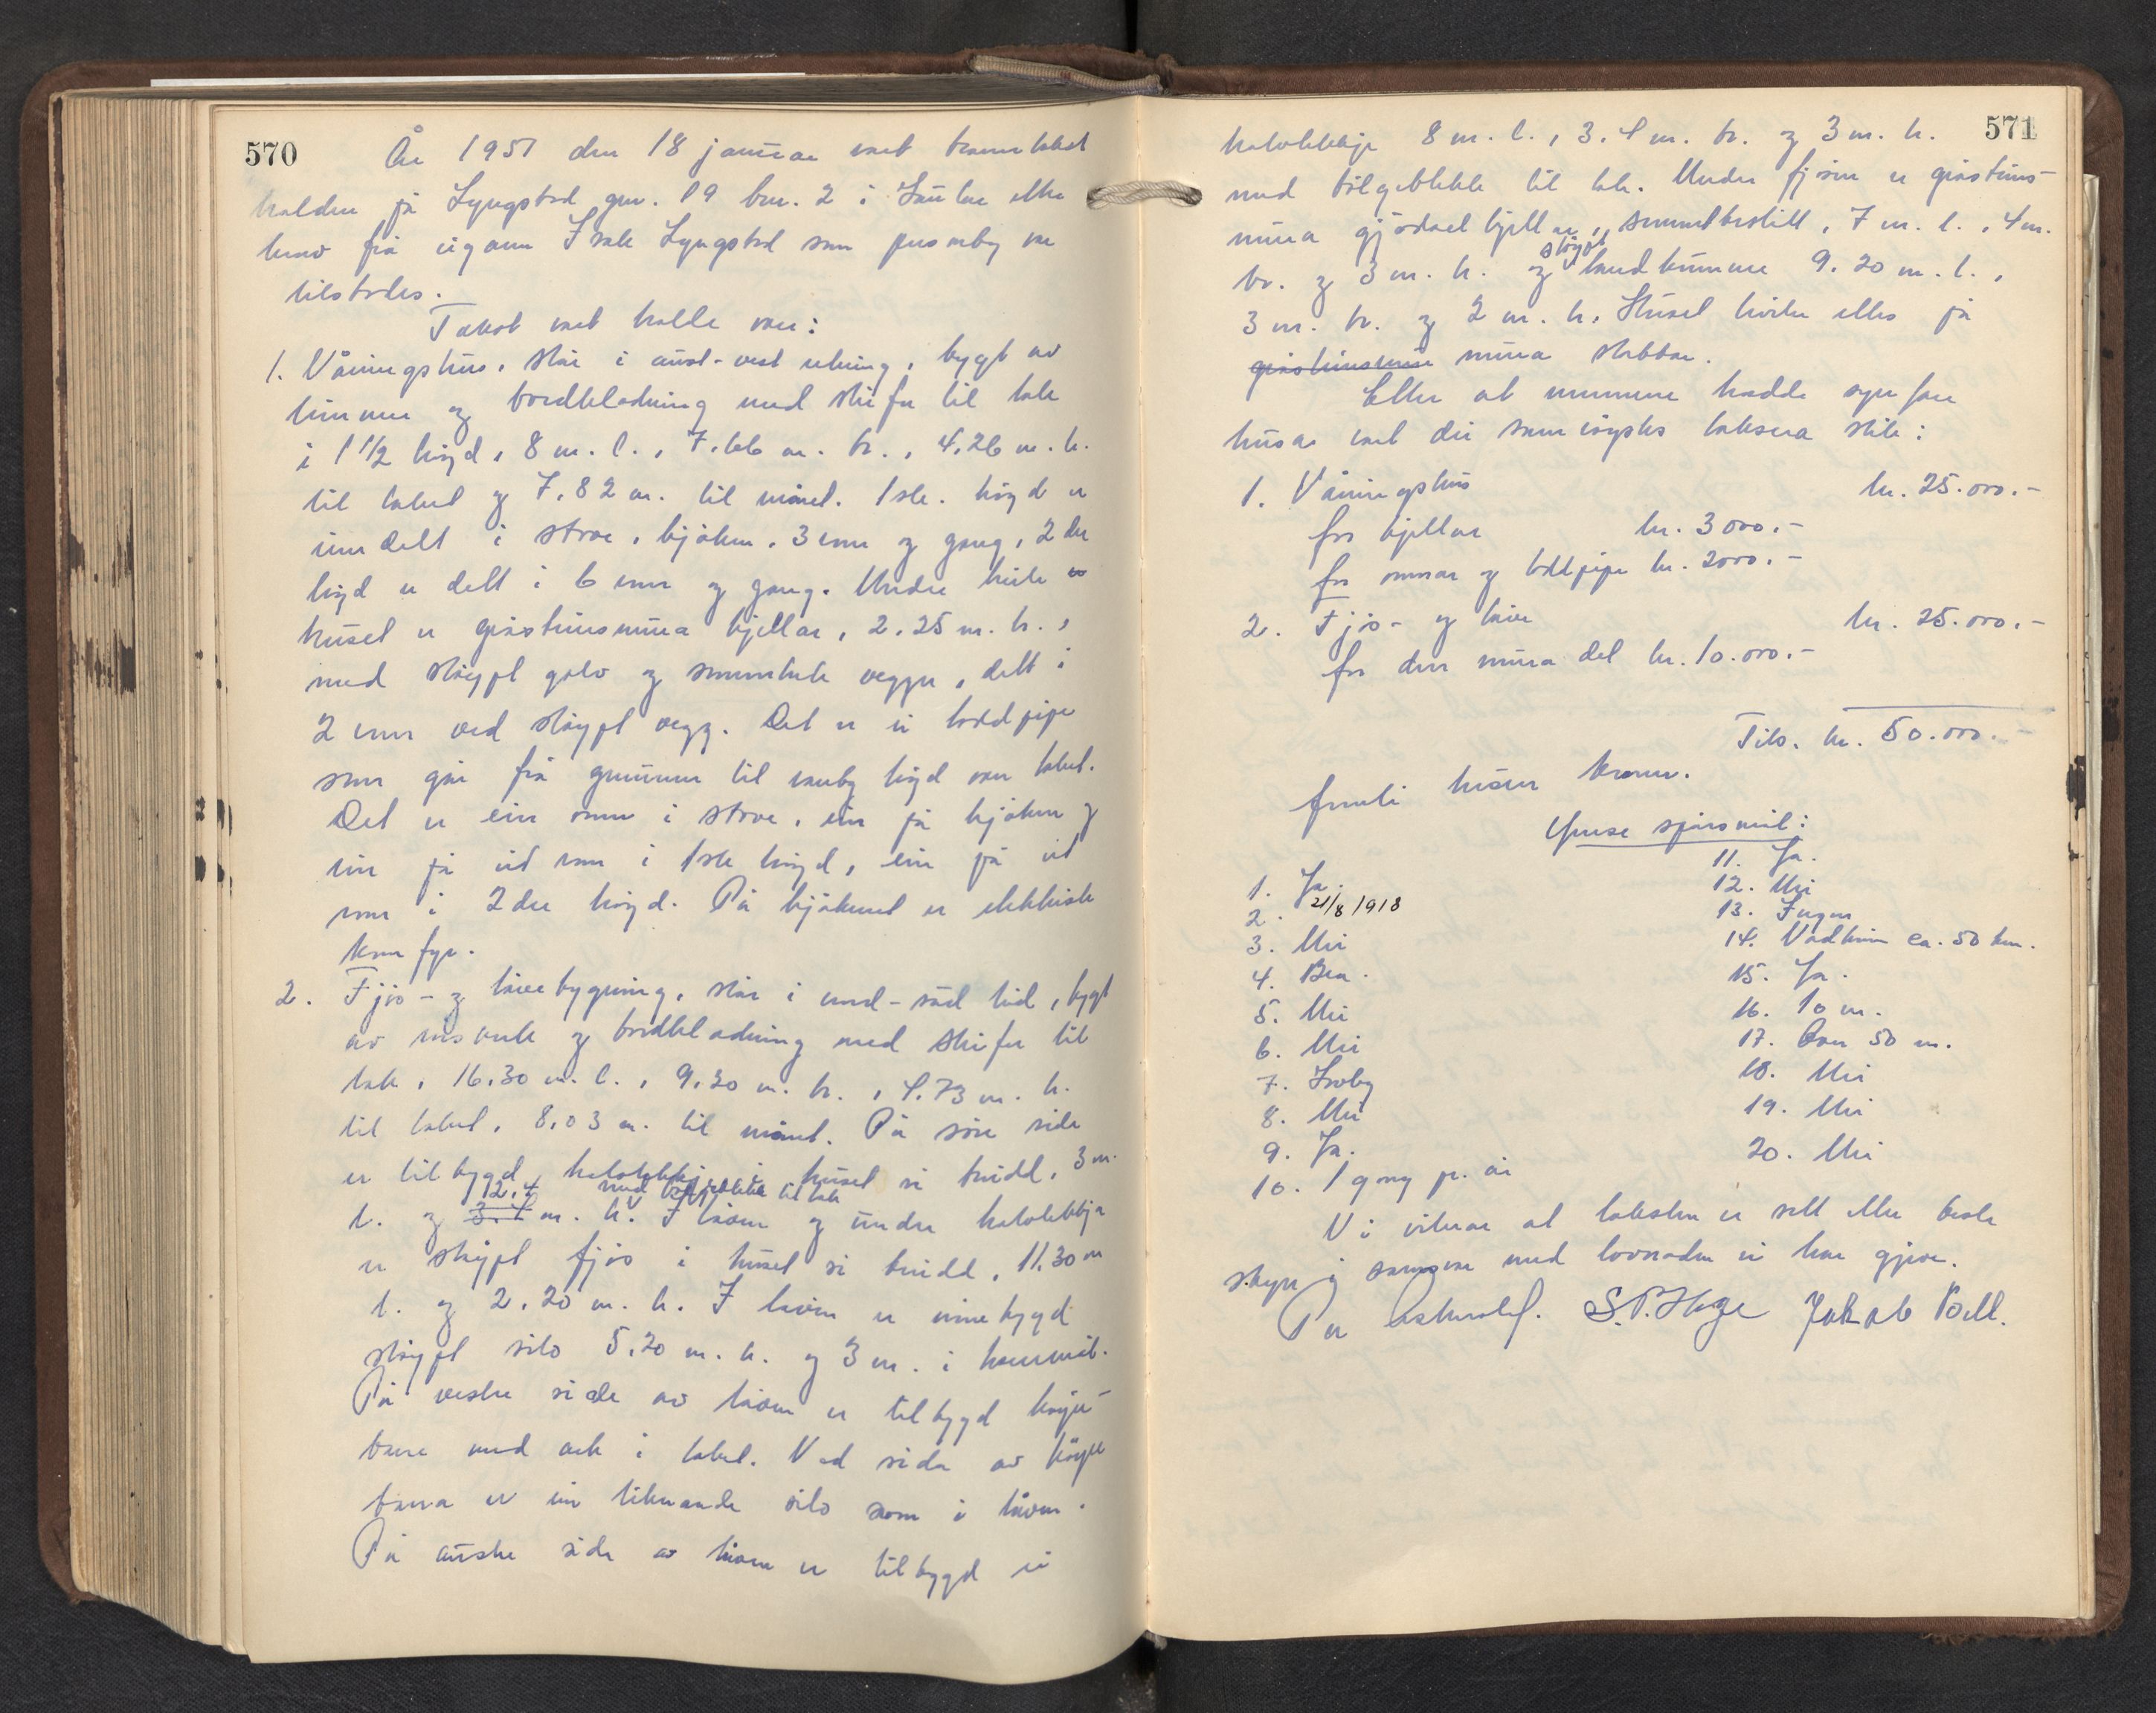 570
År 1951 den 18 januar vart branntakst
halden på Lyngstad gnr. 19 bnr. 2 i Gaular etter
krav frå eigaren Isak Lyngstad som personleg var
tilstades.
Takst vart halde over:
1. Våningshus, står i aust-vest retning, bygt av
timmer og bordkledning med skifer til tak
i 1 1/2 høgd, 8 m. l., 7.66 m. br., 4,26 m. h.
til taket og 7,82 m. til mønet. 1ste. høgd er
inndelt i stove, kjøken, 3 rom og gang, 2dre
høgd er delt i 6 rom og gang. Under heile
huset er gråsteinsmura kjellar, 2.25 m. h.,
med støypt golv og sementerte vegger, delt i
2 rom ved støypt vegg. Det er ei loddpipe
som går frå grunnen til vanleg høgd over taket.
Det er ein omn i stove, ein på kjøken og
ein på eit rom i 1ste høgd, ein på eit
rom i 2dre høgd. På kjøkenet er elektrisk
komfyr.
2. Fjøs- og løebygning, står i nord-sud leid, bygt
av reisverk og bordkledning med skifer til
tak, 16,30 m. l., 9,30 m. br., 4.73 m. h.
til taket, 8,03 m. til mønet. På søre side
er tilbygd halvtekkje i huset si breidd, 3 m.
12,4 med bølgjeblekk til tak
l. og 3.4 m. h. I løa og under halvtekkja
er støypt fjøs i huset si breidd, 11,30 m
l. og 2,20 m. h. I løa er innebygd
støypt silo 5,20 m. h. og 3 m. i tverrmål.
På vestre side av løa er tilbygd køyre-
bru med ark i taket. Ved sida av køyre
brua er ein liknande silo som i løa.
På austre side av løa er tilbygd ei
571
halvtekkje 8 m. l., 3.4 m. br. og 3 m. h.
med bølgjeblekk til tak. Under fjøsen er gråsteins-
mura gjødselkjellar, sementbestikt, 7 m. l., 4 m.
støypt
br. og 3 m. h. og landkumme 9.20 m. l.,
3 m. br. og 2 m. h. Huset kviler elles på
gråsteinsmur mura stabbar.
Etter at mennene hadde synfare
husa vart dei samrøystes taksera slik:
1. Våningshus kr. 25.000.-
for kjellar kr. 3000.-
for omnar og loddpipe kr. 2000.-
2. Fjøs- og løe kr. 25.000.-
for den mura del kr. 10.000.-
Tils. kr. 50.000.-
femti tusen kroner.
Ymse spørsmål:
1. Ja.
2. 21/8 1918
3. Nei
4. Bra.
5. Nei
6. Nei
7. Lovleg
8. Nei
9. Ja.
10. 1 gong pr. år
11. Ja.
12. Nei
13. Ingen
14. Vadheim ca. 50 km.
15. Ja.
16. 10 m.
17. Over 50 m.
18. Nei
19. Nei
20. Nei
Vi vitnar at taksten er sett etter beste
skyn i samsvar med lovnaden vi har gjeve.
Per S. P. Hage Jakob Voll.